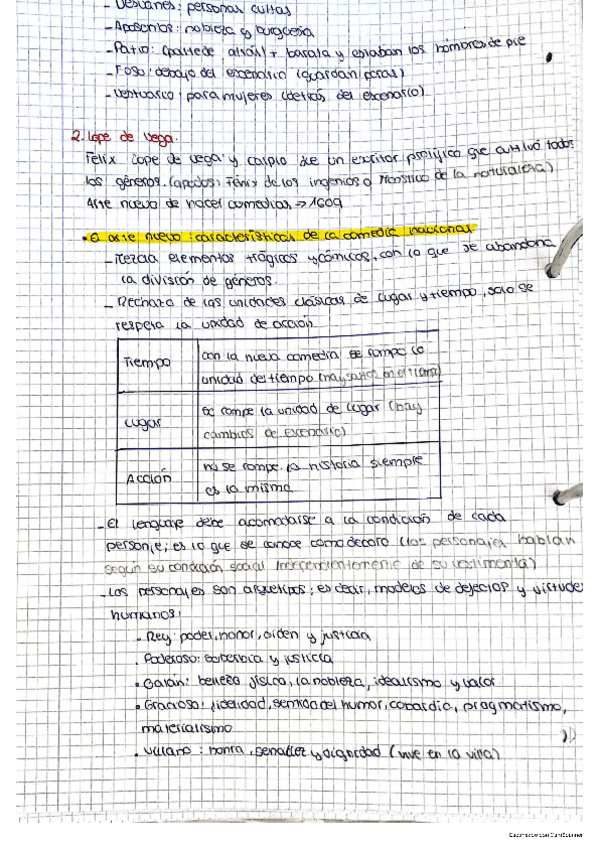 - Desvanes: personas cultas
- Aposentos: nobleza y burguesía
- Patio: (parte de atrás) + barata y estaban los hombres de pie
- Foso: debajo del escenario (guardan poras)
- Vestuario: para mujeres (detrás del escenario)
2. Lope de Vega.
Félix Lope de Vega y Carpio fue un escritor prolífico que cultivó todos
los géneros. (apodos: Fénix de los ingenios o Monstruo de la naturaleza)
Arte nuevo de hacer comedias → 1609
• El arte nuevo: características de la comedia nacional
- Mezcla elementos trágicos y cómicos, con lo que se abandona
la división de géneros.
- Rechazo de las unidades clásicas de lugar y tiempo, solo se
respeta la unidad de acción
Tiempo
con la nueva comedia se rompe la
unidad del tiempo (hay saltos en el tiempo)
Lugar
se rompe la unidad de lugar (hay
cambios de escenario)
Acción
no se rompe. la historia siempre
es la misma.
- El lenguaje debe acomodarse a la condición de cada
personaje; es lo que se conoce como decoro (los personajes hablan
según su condición social independientemente de su vestimenta)
- Los personajes son arquetipos; es decir, modelos de defectos y virtudes
humanos:
• Rey: poder, honor, orden y justicia
• Poderoso: soberbia y justicia
• Galán: belleza física, la nobleza, idealismo y valor
• Gracioso: fidelidad, sentido del humor, cobardía, pragmatismo,
materialismo
• Villano: honra, sensatez y dignidad (vive en la villa)
Escaneado con CamScanner